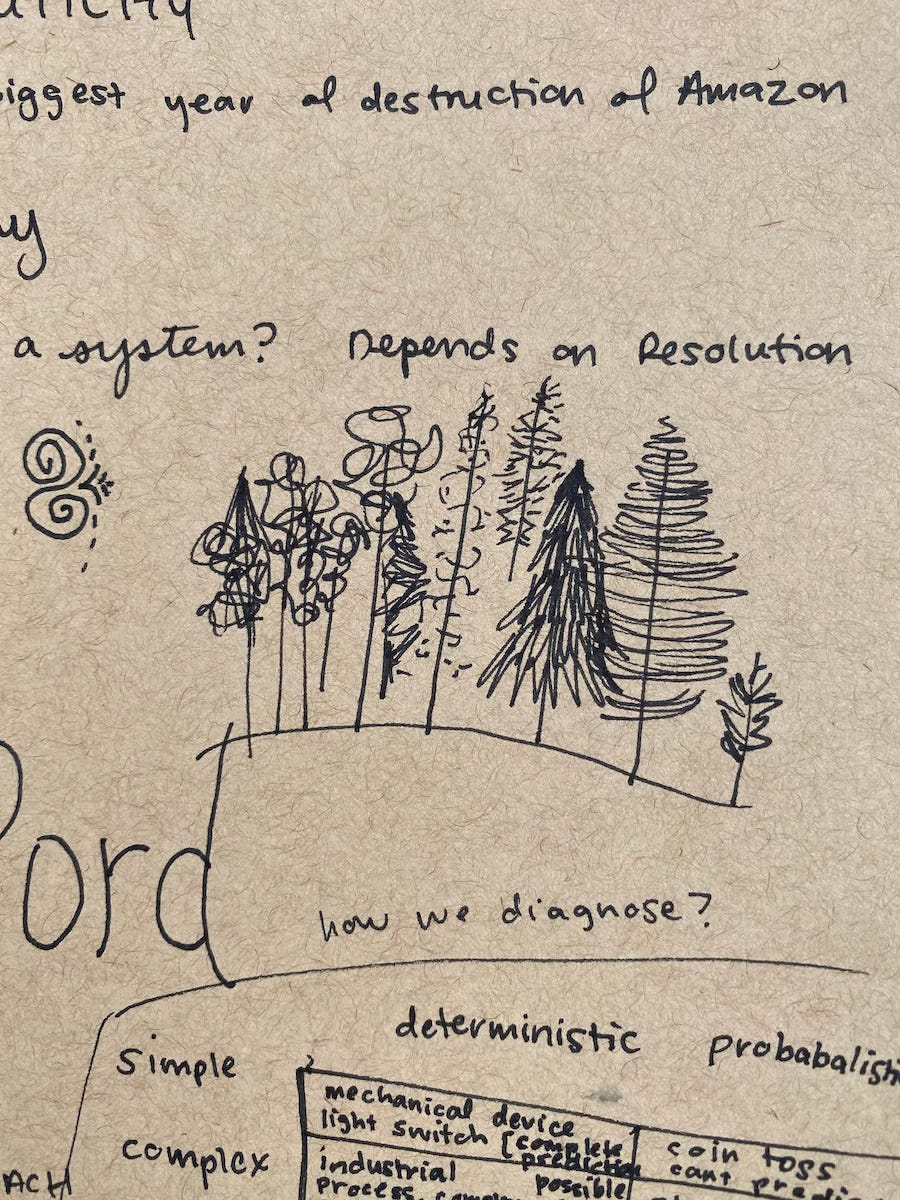 biggest year of destruction of Amazon
a system? Depends on Resolution
how we diagnose?
deterministic probabalisti
simple
mechanical device
light switch [complete prediction possible
coin toss
cant predi
complex
industrial
process
ACH